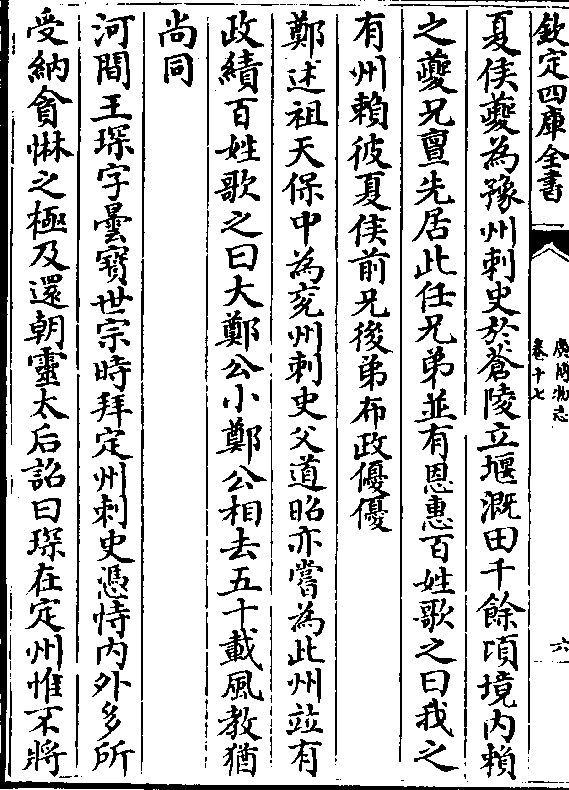 欽定四庫全書
廣博物志
卷十七
六
夏侯夔為豫州刺史於蒼陵立堰溉田千餘頃境内賴
之夔兄亶先居此任兄弟並有恩惠百姓歌之曰我之
有州賴彼夏侯前兄後弟布政優優
鄭述祖天保中為兖州刺史父道昭亦嘗為此州竝有
政績百姓歌之曰大鄭公小鄭公相去五十載風教猶
尚同
河間王琛字曇寳世宗時拜定州刺史憑恃内外多所
受納貪惏之極及還朝靈太后詔曰琛在定州惟不將